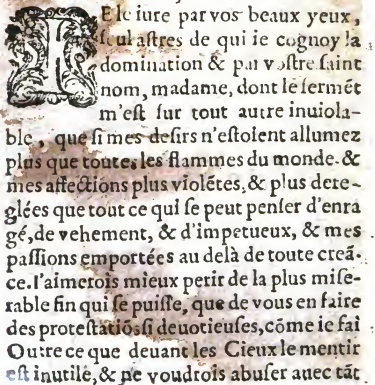 IE le iure par vos beaux yeux,
seul astres de qui ie cognoy la
domination & par vostre saint
nom, madame, dont le sermẽt
m'est sur tout autre inuiola-
ble, que si mes desirs n'estoient allumez
plus que toutes les flammes du monde. &
mes affections plus violẽtes, & plus dere-
glées que tout ce qui se peut penser d'enra
gé, de vehement, & d'impetueux, & mes
passions emportées au delà de toute creã-
ce. I'aimerois mieux perir de la plus mise-
rable fin qui se puisse, que de vous en faire
des protestatiõs si deuotieuses, cõme ie fai
Outre ce que deuant les Cieux le mentir
est inutile, & ne voudrois abuser auec tãt